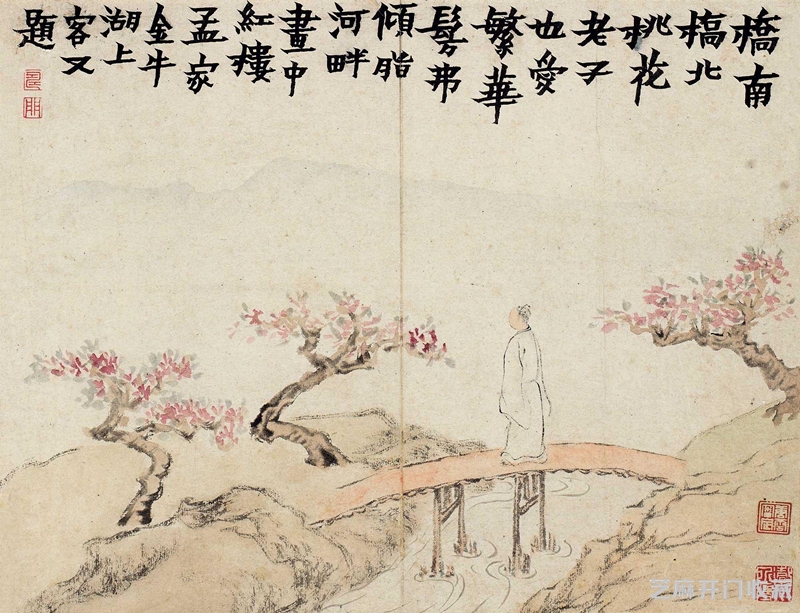 橋南
槁北
桃花
老子
也愛
繁華
髣弗
傾脂
河畔
畫中
紅樓
孟家
金牛
湖上
客又
題
芝麻开门收藏